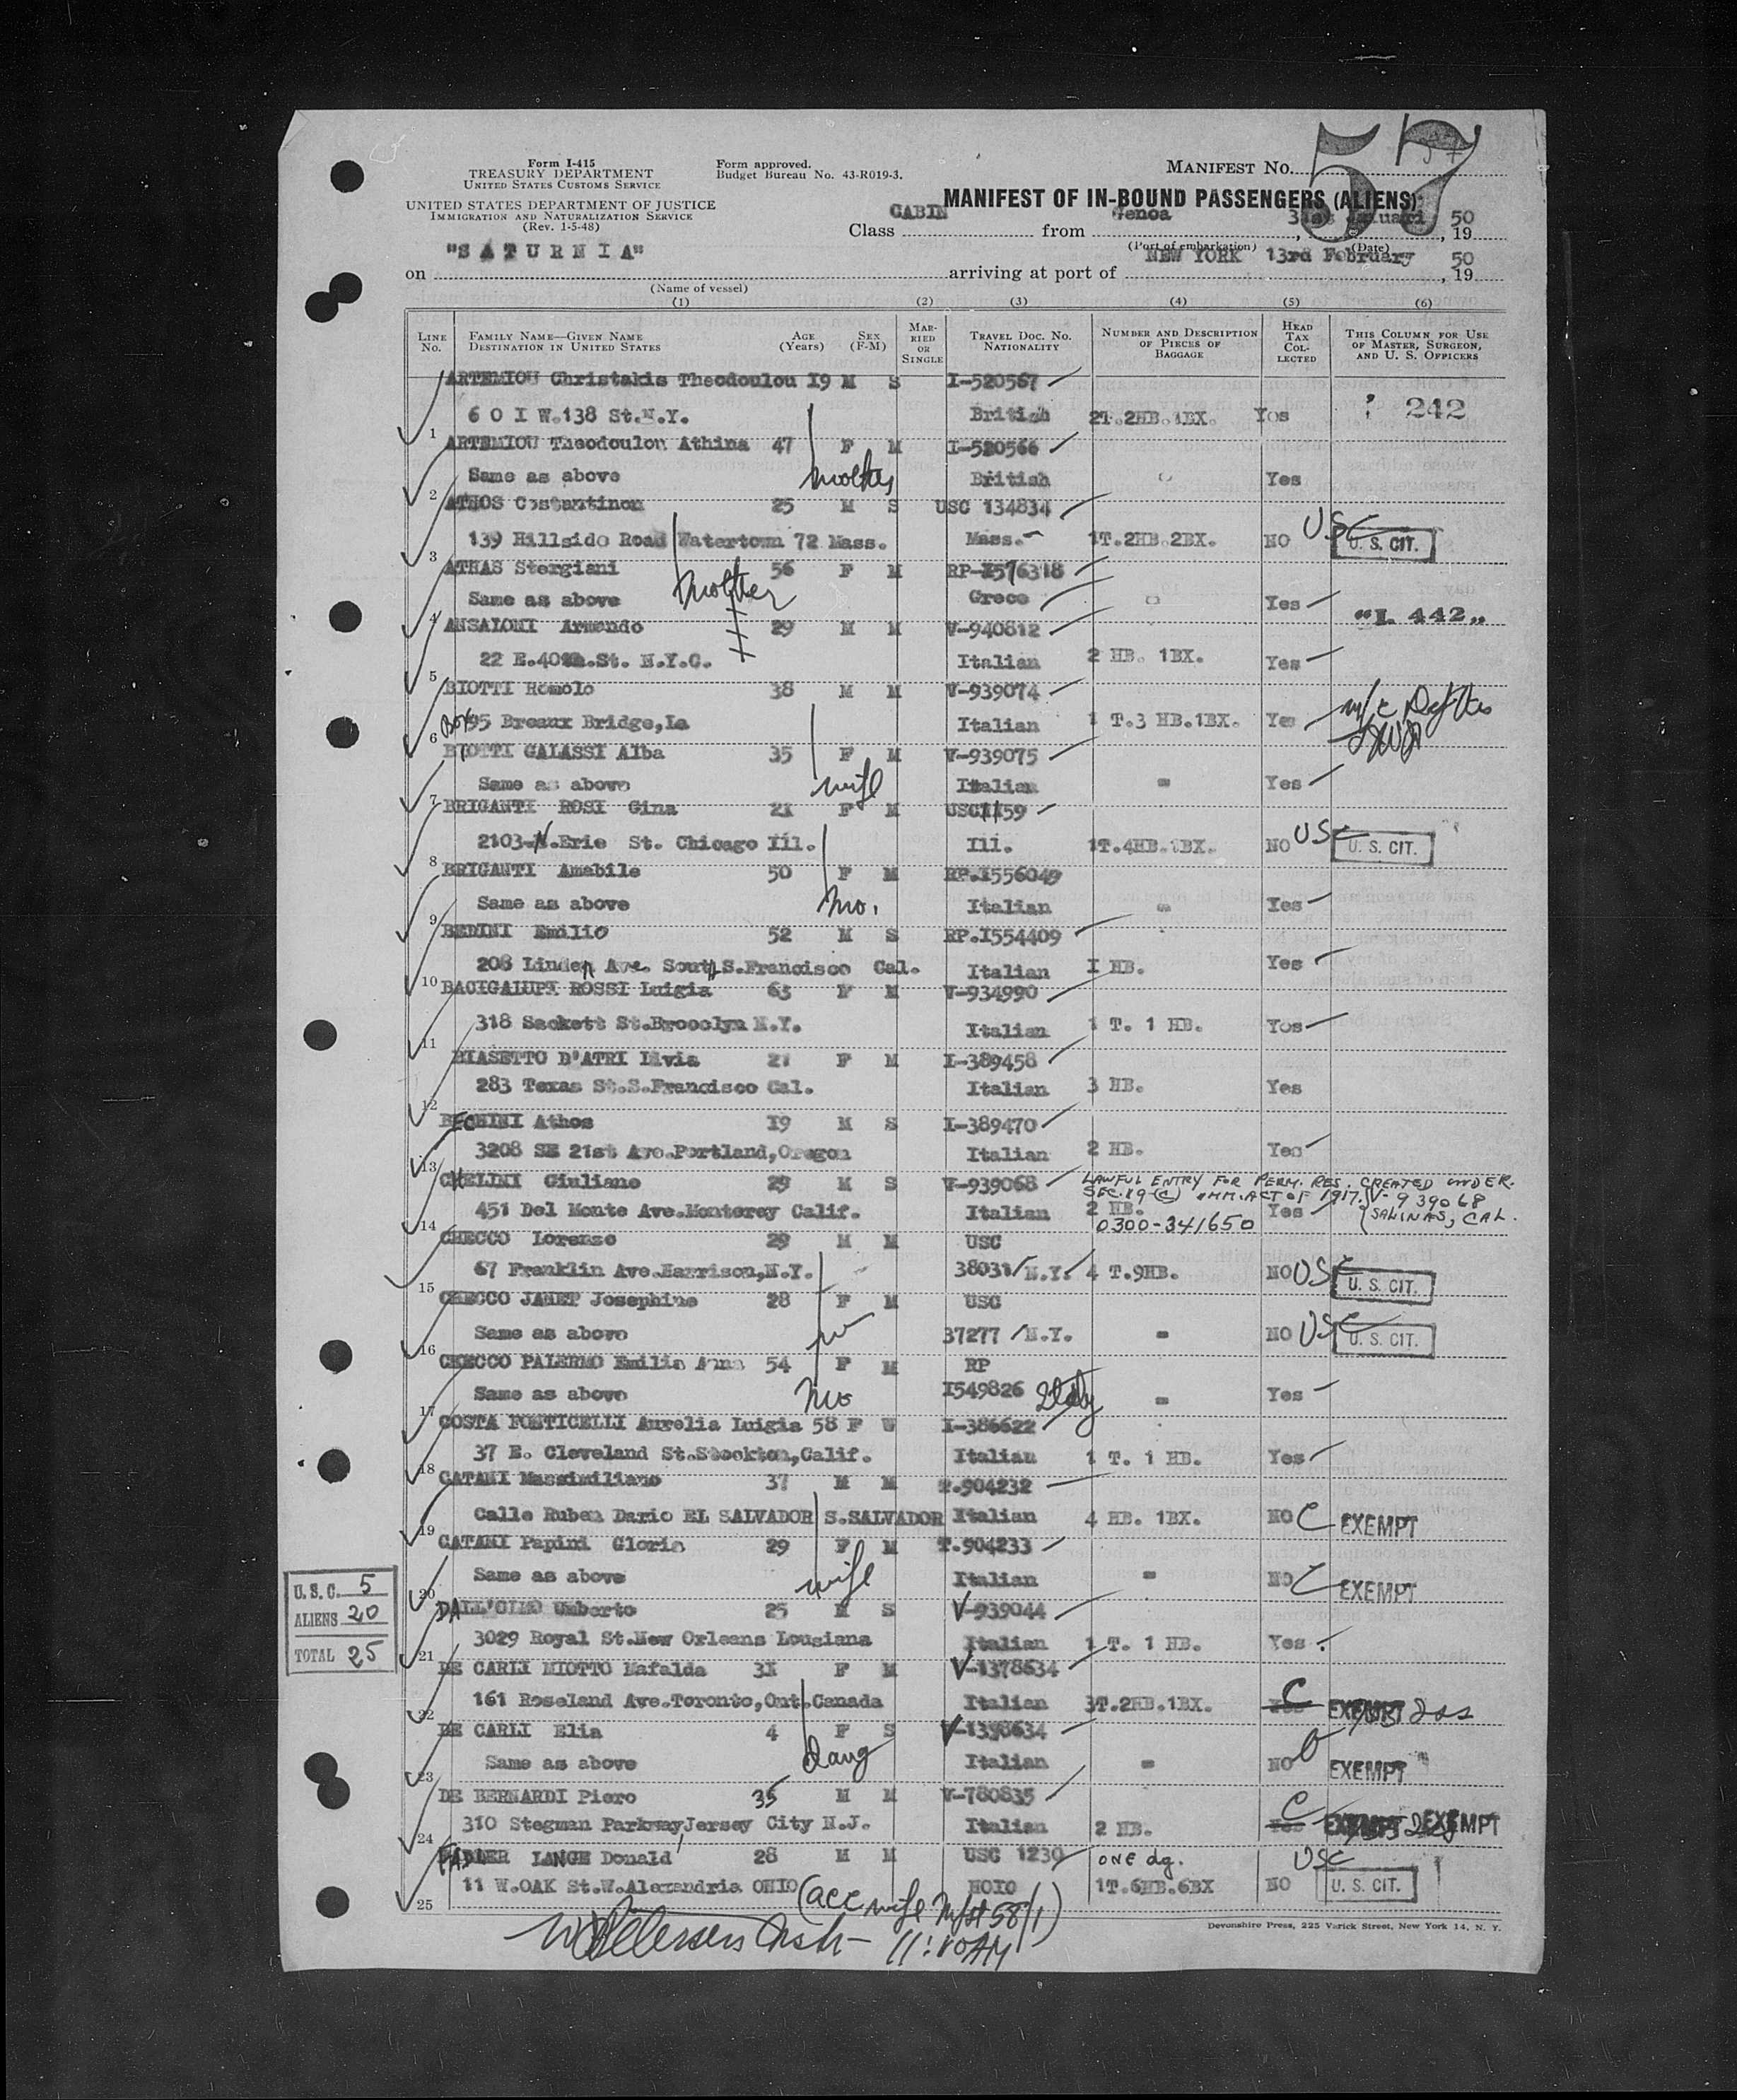 57
Form I-415
TREASURY DEPARTMENT
UNITED STATES CUSTOMS SERVICE
Form approved.
Budget Bureau No. 43-R019-3.
MANIFEST No.
UNITED STATES DEPARTMENT OF JUSTICE
IMMIGRATION AND NATURALIZATION SERVICE
(Rev. 1-5-48)
MANIFEST OF IN-BOUND PASSENGERS (ALIENS)
Class CABIN from Genoa, 19 50
(Port of embarkation) (Date)
on "SATURNIA" arriving at port of NEW YORK 13rd February, 19 50
(Name of vessel)
(1) (2) (3) (4) (5) (6)
LINE No. FAMILY NAME—GIVEN NAME DESTINATION IN UNITED STATES AGE (Years) SEX (F-M) MARRIED OR SINGLE TRAVEL DOC. No. NATIONALITY NUMBER AND DESCRIPTION OF PIECES OF BAGGAGE HEAD TAX COLLECTED THIS COLUMN FOR USE OF MASTER, SURGEON, AND U. S. OFFICERS
ARTEMIOU Christakis Theodoulou I9 M S I-520567
1 6 0 I W.138 St.N.Y. British 2T.2HB.1BX. Yes 242
ARTEMIOU Theodoulon Athina 47 F M I-520566
2 Same as above mother British Yes
ATHOS Costantinon 25 M S USC 134834
3 139 Hillside Road Watertown 72 Mass. Mass. 1T.2HB.2BX. NO USC U. S. CIT.
ATHAS Stergiani 56 F M RP-I576318
4 Same as above mother Grece Yes "I. 442"
ANSALONI Armando 29 M M V-940812
5 22 E.40th.St. N.Y.C. Italian 2 HB. 1BX. Yes
BIOTTI Romolo 38 M M V-939074
6 Box 95 Breaux Bridge,La Italian 1 T.3 HB.1BX. Yes
BIOTTI GALASSI Alba 35 F M V-939075
7 Same as above wife Italian = Yes
BRIGANTI ROSI Gina 2I F M USC1159
8 2103-N.Erie St. Chicago Ill. Ill. 1T.4HB.1BX. NO USC U. S. CIT.
BRIGANTI Amabile 50 F M RP.I556049
9 Same as above Mo. Italian = Yes
BEDINI Emilio 52 M S RP.I554409
10 208 Linden Ave. South S.Francisco Cal. Italian I HB. Yes
BACIGALUPI ROSSI Luigia 63 F M V-934990
11 318 Sackett St.Brooclyn N.Y. Italian 1 T. 1 HB. Yes
BIASETTO D'ATRI Livia 21 F M I-389458
12 283 Texas St.S.Francisco Cal. Italian 3 HB. Yes
BECHINI Athos I9 M S I-389470
13 3208 SE 21st Ave.Portland,Oregon Italian 2 HB. Yes
CHELINI Giuliano 29 M S V-939068 LAWFUL ENTRY FOR PERM. RES. CREATED UNDER
SEC. 19 (C) IMM. ACT OF 1917. V-939068
14 451 Del Monte Ave.Monterey Calif. Italian 2 HB. Yes SALINAS, CAL.
0300-341650
CHECCO Lorenzo 29 M M USC
15 67 Franklin Ave.Harrison,N.Y. 38031/N.Y. 4 T.9HB. NO USC U. S. CIT.
CHECCO JANET Josephine 28 F M USC
16 Same as above w 37277/N.Y. = NO USC U. S. CIT.
CHECCO PALERMO Emilia Anna 54 F M RP
17 Same as above Mo I549826 Italy = Yes
COSTA PONTICELLI Aurelia Luigia 58 F W I-386622
18 37 E. Cleveland St.Stockton,Calif. Italian 1 T. 1 HB. Yes
CATANI Massimiliano 37 M M T.904232
19 Calle Ruben Dario EL SALVADOR S.SALVADOR Italian 4 HB. 1BX. NO C EXEMPT
CATANI Papini Gloria 29 F M T.904233
20 Same as above wife Italian = NO C EXEMPT
U.S.C. 5
ALIENS 20
TOTAL 25
DALL'OLIO Umberto 25 M S V-939044
21 3029 Royal St.New Orleans Lousiana Italian 1 T. 1 HB. Yes
DE CARLI MIOTTO Mafalda 3I F M V-1378634
22 161 Roseland Ave.Toronto,Ont.Canada Italian 3T.2HB.1BX. Yes C EXEMPT
DE CARLI Elia 4 F S V-1398634
23 Same as above Daug Italian = NO EXEMPT
DE BERNARDI Piero 35 M M V-780835
24 310 Stegman Parkway Jersey City N.J. Italian 2 HB. Yes C EXEMPT
LANGE Donald 28 M M USC 1230 ONE dg.
25 11 W.OAK St.W.Alexandria OHIO HOIO 1T.6HB.6BX NO USC U. S. CIT.
(acc wife Mfst 58/1)
11:00AM
Devonshire Press, 225 Varick Street, New York 14, N. Y.